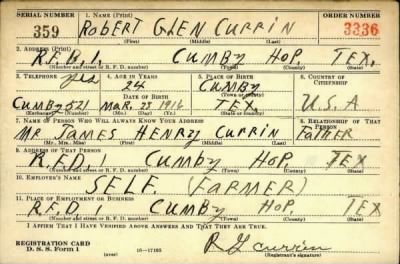 SERIAL NUMBER 1. NAME (Print) ORDER NUMBER
359 ROBERT GLEN CURRIN 3336
(First) (Middle) (Last)
2. ADDRESS (Print)
R.F.D. 1 CUMBY HOP. TEX.
(Number and street or R. F. D. number) (Town) (County) (State)
3. TELEPHONE yes 4. AGE IN YEARS 5. PLACE OF BIRTH 6. COUNTRY OF CITIZENSHIP
24 CUMBY
DATE OF BIRTH (Town or county)
CUMBY 521 MAR. 23 1916 TEX. U.S.A
(Exchange) (Number) (Mo.) (Day) (Yr.) (State or country)
7. NAME OF PERSON WHO WILL ALWAYS KNOW YOUR ADDRESS 8. RELATIONSHIP OF THAT PERSON
MR. JAMES HENRY CURRIN FATHER
(Mr., Mrs., Miss) (First) (Middle) (Last)
9. ADDRESS OF THAT PERSON
R.F.D. 1 CUMBY HOP. TEX
(Number and street or R. F. D. number) (Town) (County) (State)
10. EMPLOYER'S NAME
SELF. (FARMER)
11. PLACE OF EMPLOYMENT OR BUSINESS
R.F.D. 1 CUMBY HOP. TEX
(Number and street or R. F. D. number) (Town) (County) (State)
I AFFIRM THAT I HAVE VERIFIED ABOVE ANSWERS AND THAT THEY ARE TRUE.
REGISTRATION CARD
D. S. S. Form 1 (over) 16—17105 R G Currin
(Registrant's signature)